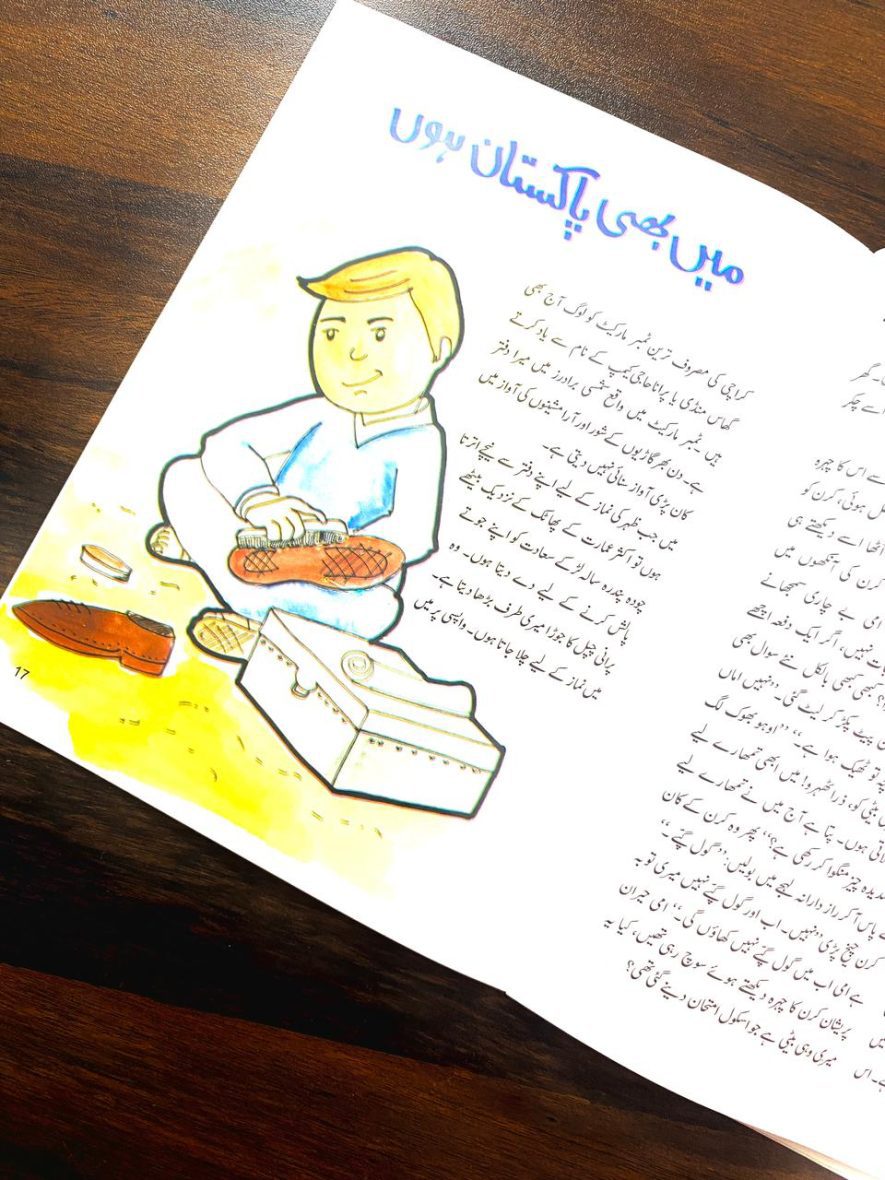 میں بھی پاکستان ہوں
کراچی کی مصروف ترین ٹمبر مارکیٹ کو لوگ آج بھی
گھاس منڈی یا پرانا حاجی کیمپ کے نام سے یاد کرتے
ہیں۔ ٹمبر مارکیٹ میں واقع شمسی برادرز میں میرا دفتر
ہے۔ دن بھر گاڑیوں کے شور اور آرا مشینوں کی آواز میں
کان پڑی آواز سنائی نہیں دیتی ہے۔
میں جب ظہر کی نماز کے لیے اپنے دفتر سے نیچے اترتا
ہوں تو اکثر عمارت کے پھاٹک کے نزدیک بیٹھے
چودہ پندرہ سالہ لڑکے سعادت کو اپنے جوتے
پالش کرنے کے لیے دے دیتا ہوں۔ وہ
پرانی چپل کا جوڑا میری طرف بڑھا دیتا ہے۔
میں نماز کے لیے چلا جاتا ہوں۔ واپسی پر میں
17
گھر
اے چکر
سے اس کا چہرہ
ہوئی، کرن کو
اٹھا اسے دیکھتے ہی
کرن کی آنکھوں میں
امی بے چاری سمجھانے
نہیں، اگر ایک دفعہ اچھے
کبھی کبھی بالکل نئے سوال بھی
پیٹ پکڑ کر لیٹ گئی۔ ”نہیں اماں
تو ٹھیک ہوا ہے۔“ ”اوہو بھوک لگ
بیٹی کو، ذرا ٹھہرو! میں ابھی تمھارے لیے
لاتی ہوں۔ پتا ہے آج میں نے تمھارے لیے
چیز منگوا کر رکھی ہے؟“ پھر وہ کرن کے کان
پاس آکر رازدارانہ لہجے میں بولیں: ”گول گپے۔“
کرن چیخ پڑی ”نہیں۔ اب اور گول گپے نہیں میری توبہ
ہے امی اب میں گول گپے نہیں کھاؤں گی۔“ امی حیران
پریشان کرن کا چہرہ دیکھتے ہوئے سوچ رہی تھیں، کیا یہ
میری وہی بیٹی ہے جو اسکول امتحان دینے گئی تھی؟
میں
ہے۔ اس